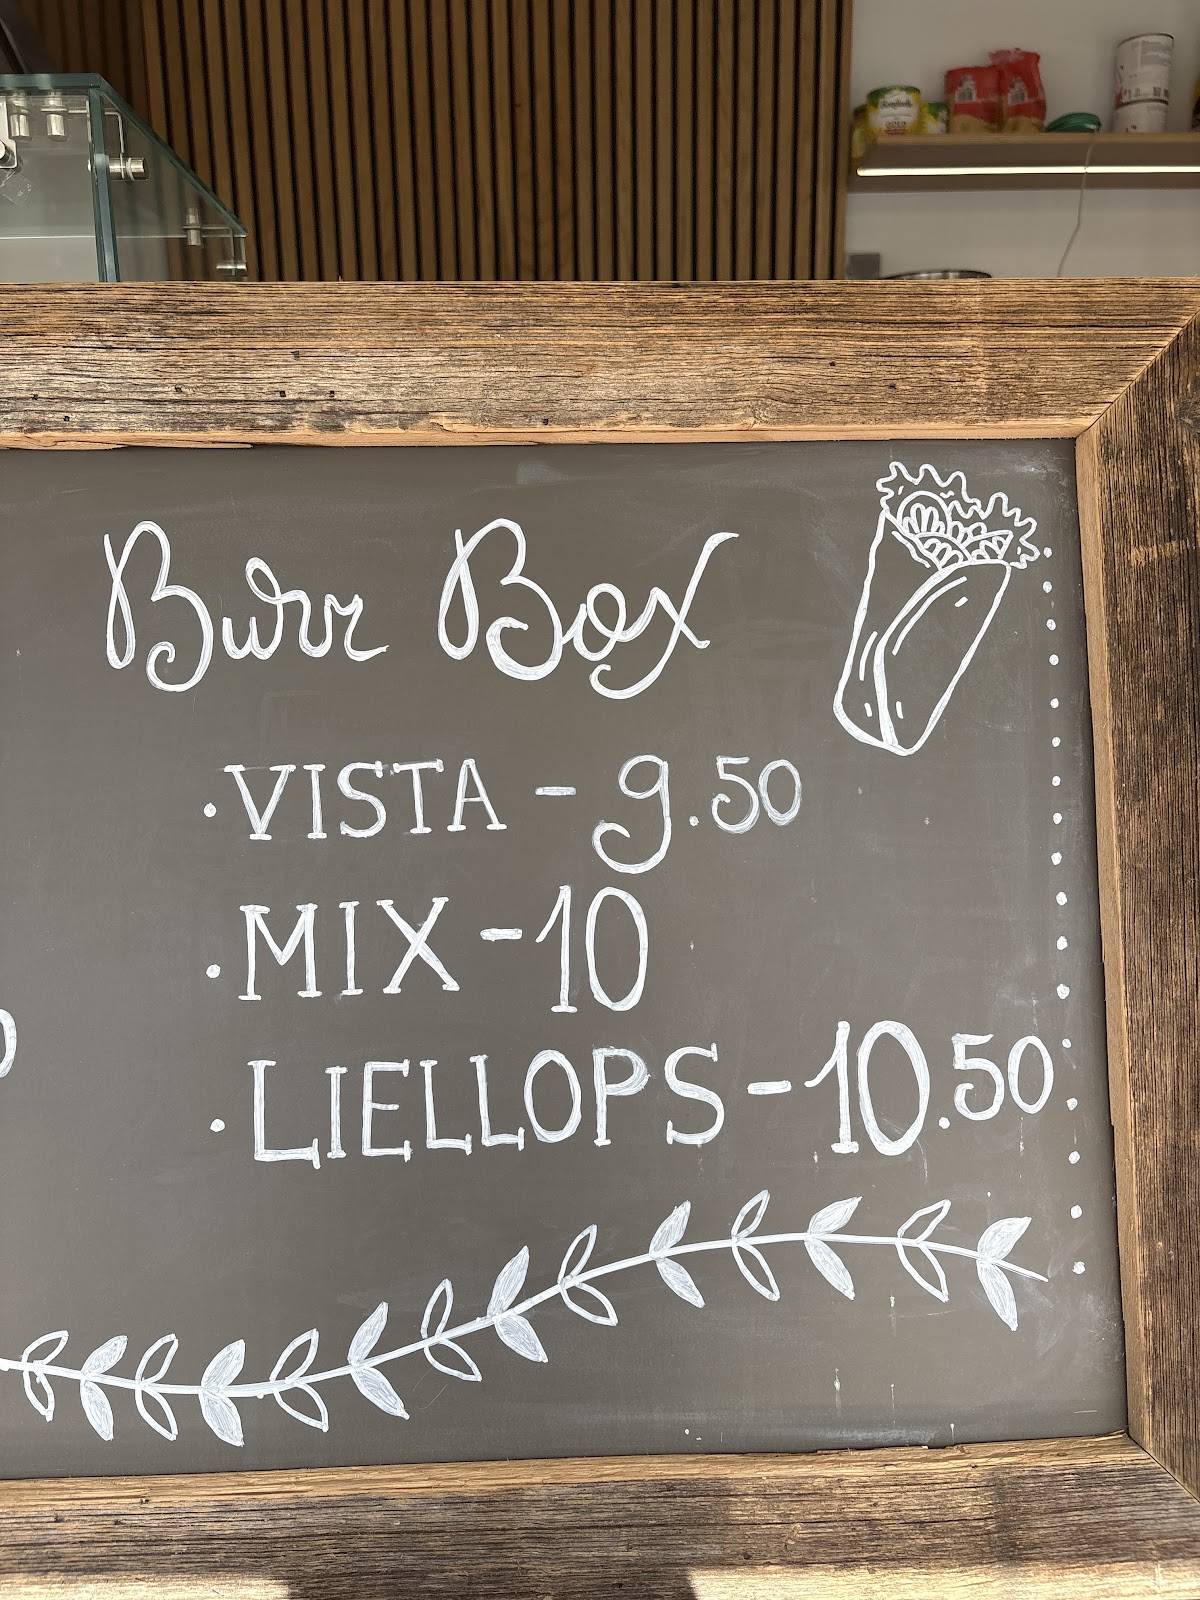 Burr Box
· VISTA - 9.50
· MIX - 10
· LIELLOPS - 10.50